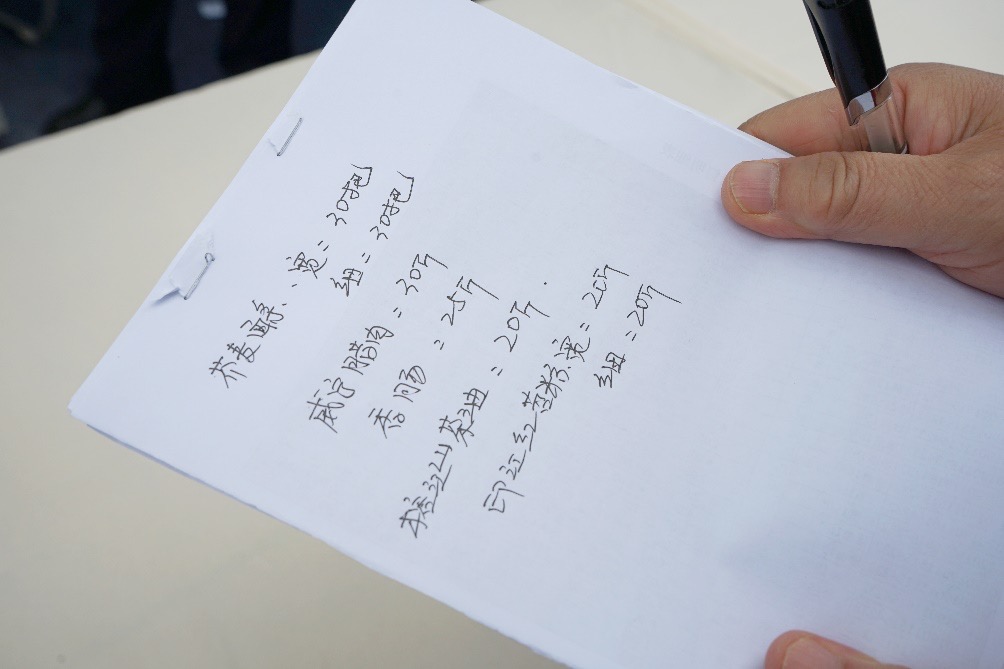 荞麦面条、宽=30把
细=30把
威宁腊肉=30斤
香肠=25斤
=20斤.
印江红苕粉、宽=20斤
细=20斤